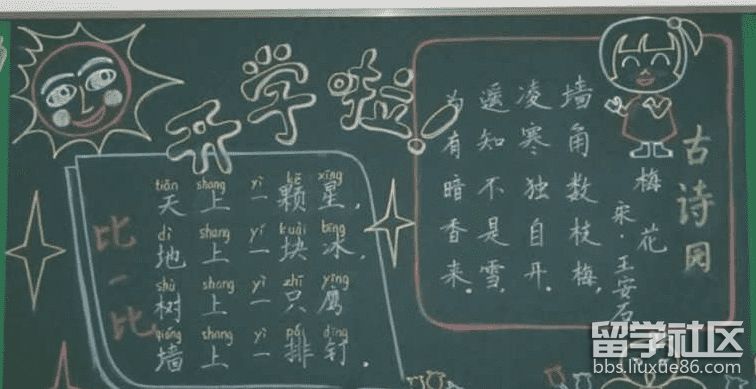 开学啦!
比一比
tiān shang yì kē xīng
天上一颗星,
dì shang yí kuài bīng
地上一块冰,
shù shang yì zhī yīng
树上一只鹰,
qiáng shang yì pái dīng
墙上一排钉.
古诗园
梅花
宋·王安石
墙角数枝梅,
凌寒独自开.
遥知不是雪,
为有暗香来.
留学社区
bbs.liuxue86.com